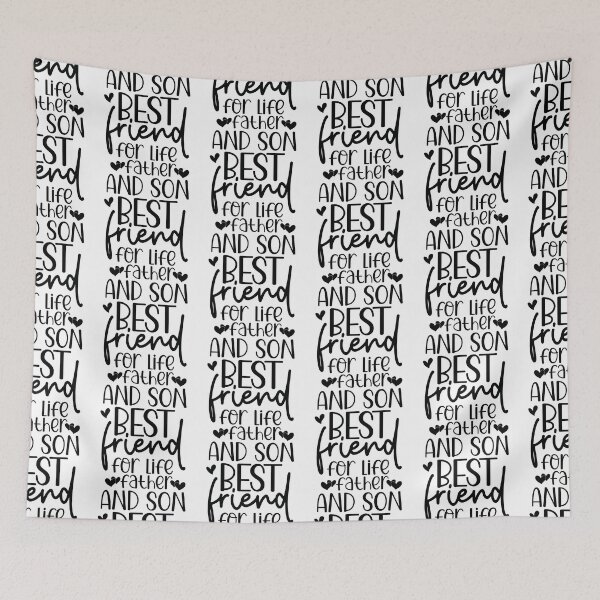 end
life
father
SON
EST
iend
life
father
SON
EST
iend
life
father
SON
EST
riend
life
father
ND SON
BEST
friend
for life
AND SON
BEST
friend
for life
father
AND SON
BEST
friend
for life
father
AND SON
BEST
friend
for life
father
AND SON
BEST
friend
for life
father
AND SON
BEST
friend
for life
father
AND SON
BEST
friend
for life
father
AND SON
BEST
friend
for life
father
AND SON
BEST
friend
for life
father
AND SON
BEST
friend
for life
AND SON
BEST
friend
for life
father
AND SON
BEST
friend
for life
father
AND SON
BEST
friend
for life
father
AND SON
BEST
friend
for life
father
AND SON
BEST
friend
for life
father
AND SON
BEST
friend
for life
father
AND SON
BEST
friend
for life
father
AND SON
BEST
friend
for life
father
AND SON
BEST
friend
for life
AND SON
BEST
frien
for life
father
AND SON
BEST
frien
for life
father
AND SON
BEST
frien
for life
father
AND SON
BEST
frien
for life
father
AND SON
BEST